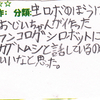 作：分類：生ロボのぼうけ
おじいちゃんが作った
アンコロダンゴロボットに
カブトムシと話しているの
いいなと思った。